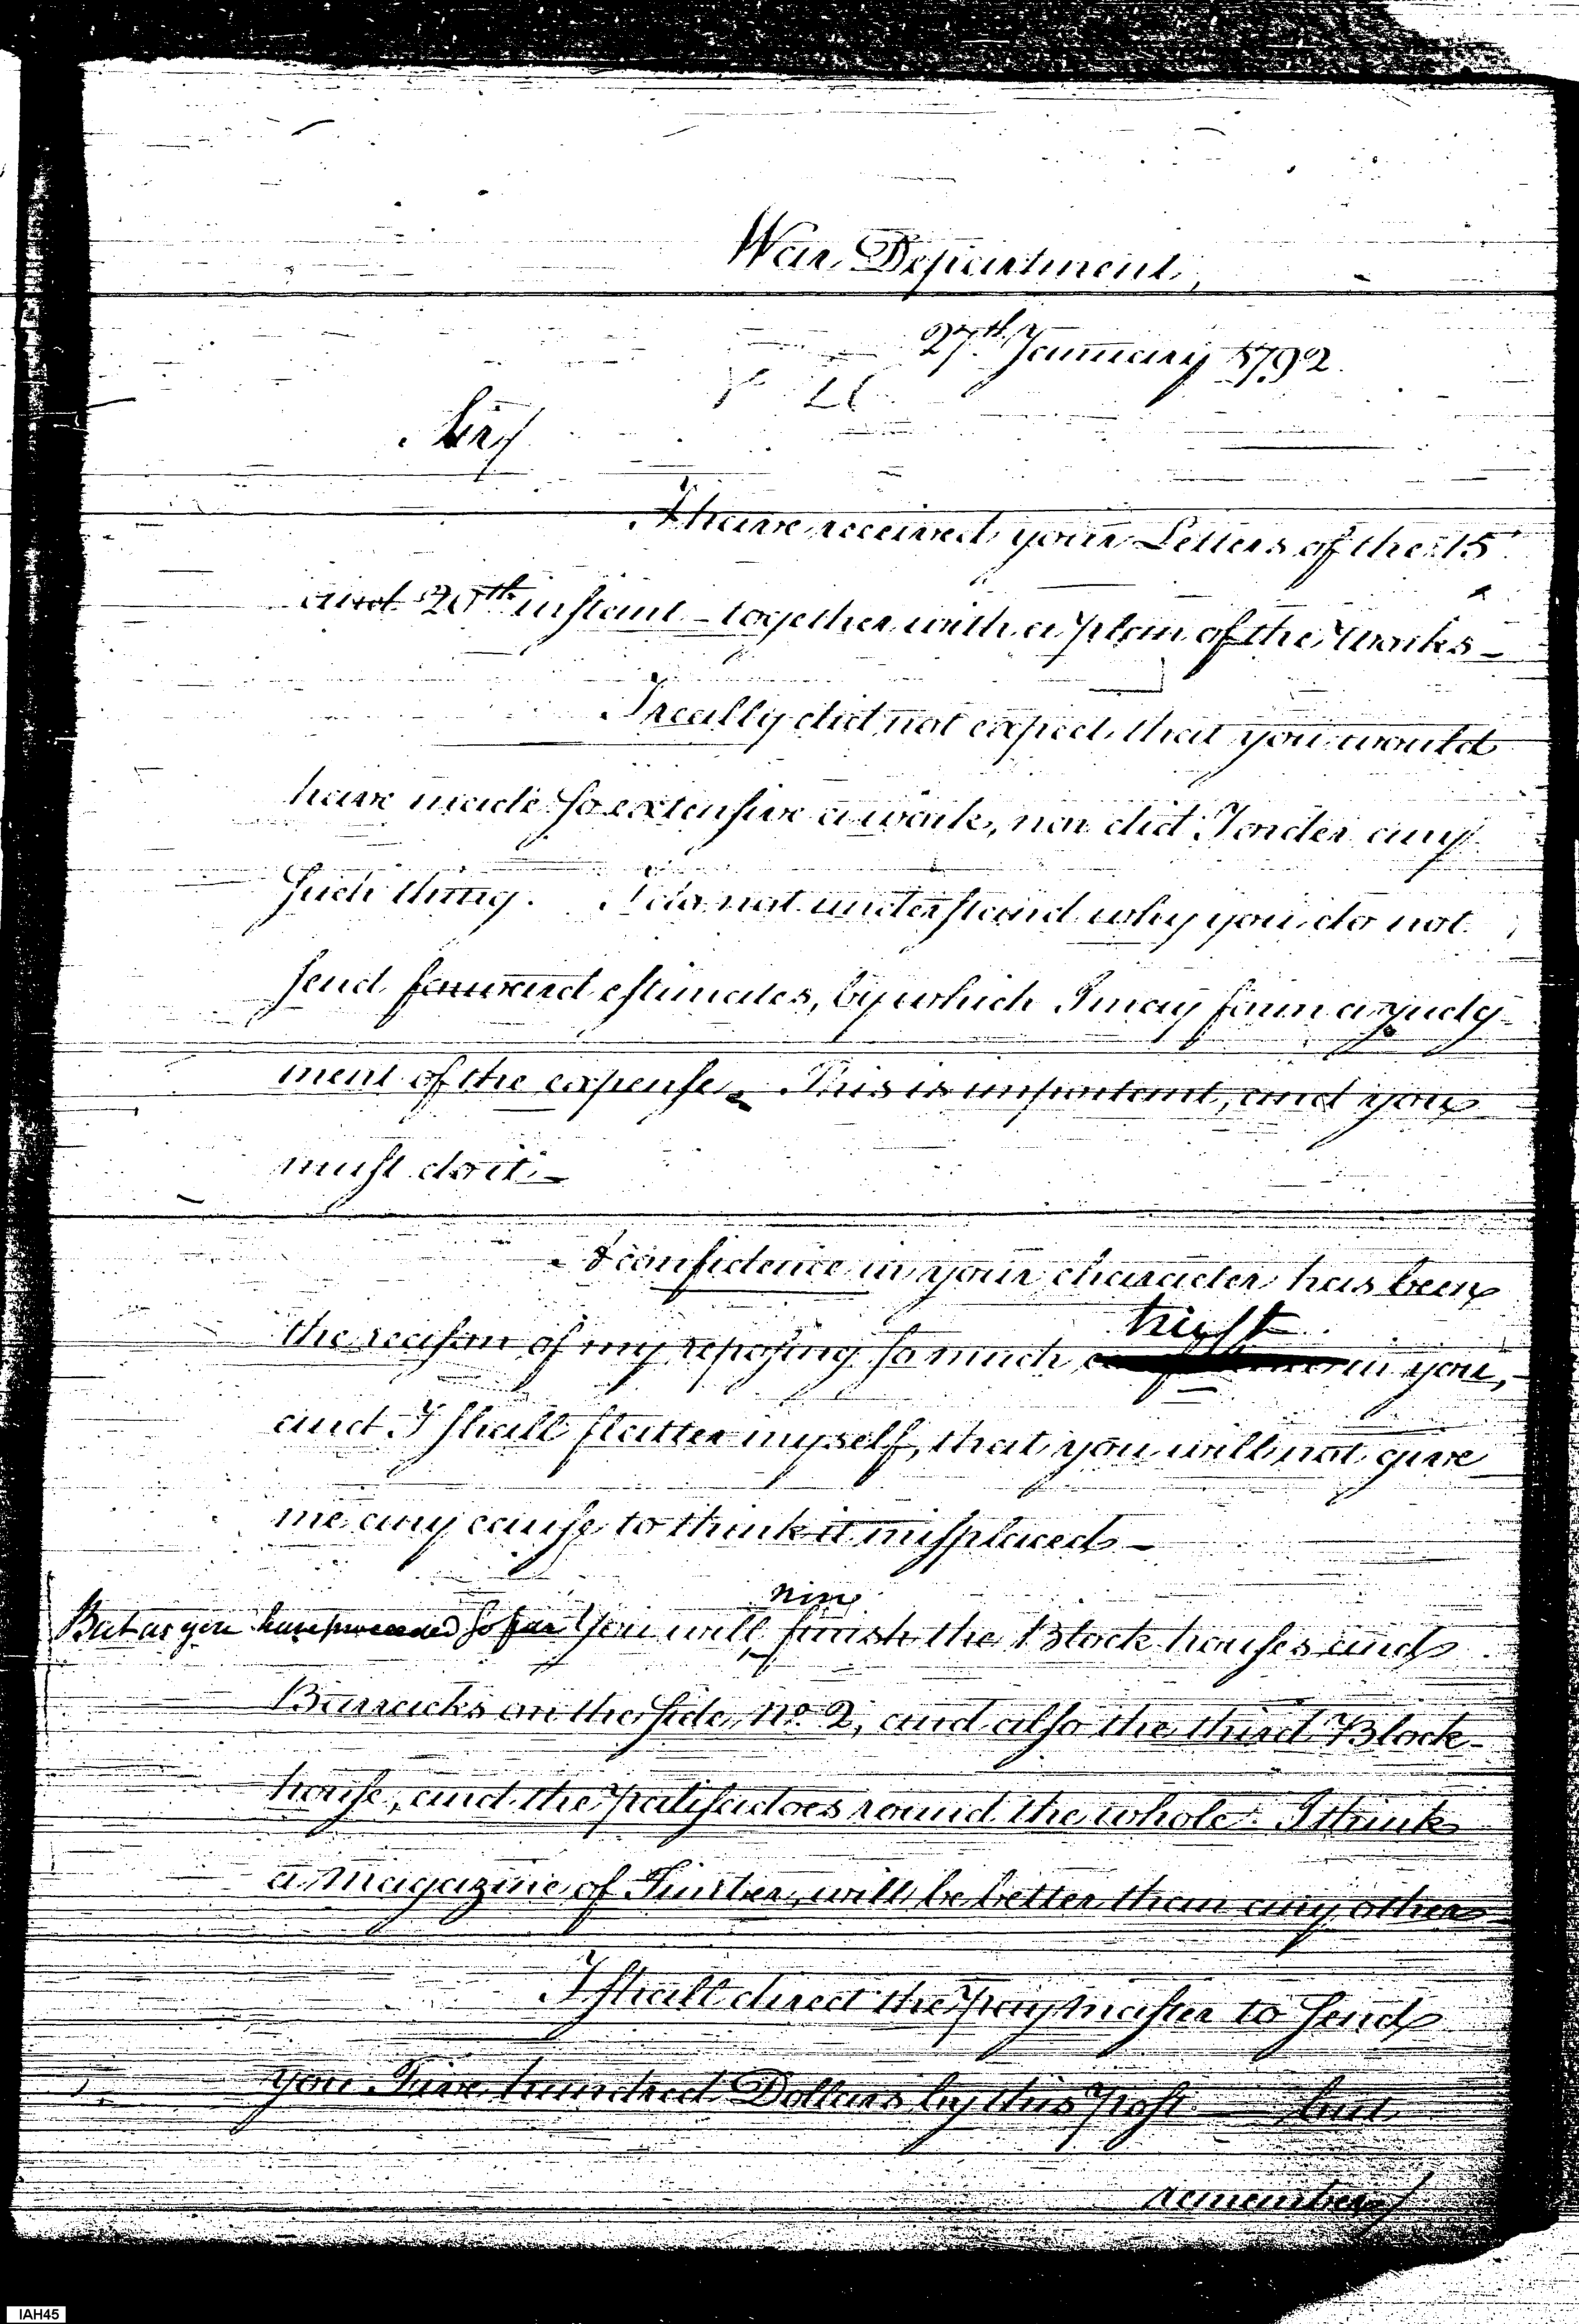 War Department,
27th. January 1792.
Sir/
I have received your Letters of the 15
and 20th instant - together with a plan of the Works -
I really did not expect that you would
have made so extensive a work, nor did I order any
such thing. I do not understand why you do not
send forward estimates, by which I may form a judg-
ment of the expense. This is important, and you
must do it. -
A confidence in your character has been
trust
the reason of my reposing so much in you, -
and I shall flatter myself, that you will not give
me any cause to think it misplaced -
now
But as you have proceeded so far You will finish the Block houses and
Barracks on the side, No. 2, and also the third Block
house, and the palisadoes round the whole. I think
a magazine of Timber, will be better than any other
I shall direct the paymaster to send
you Five hundred Dollars by this post - but
remember/
IAH45